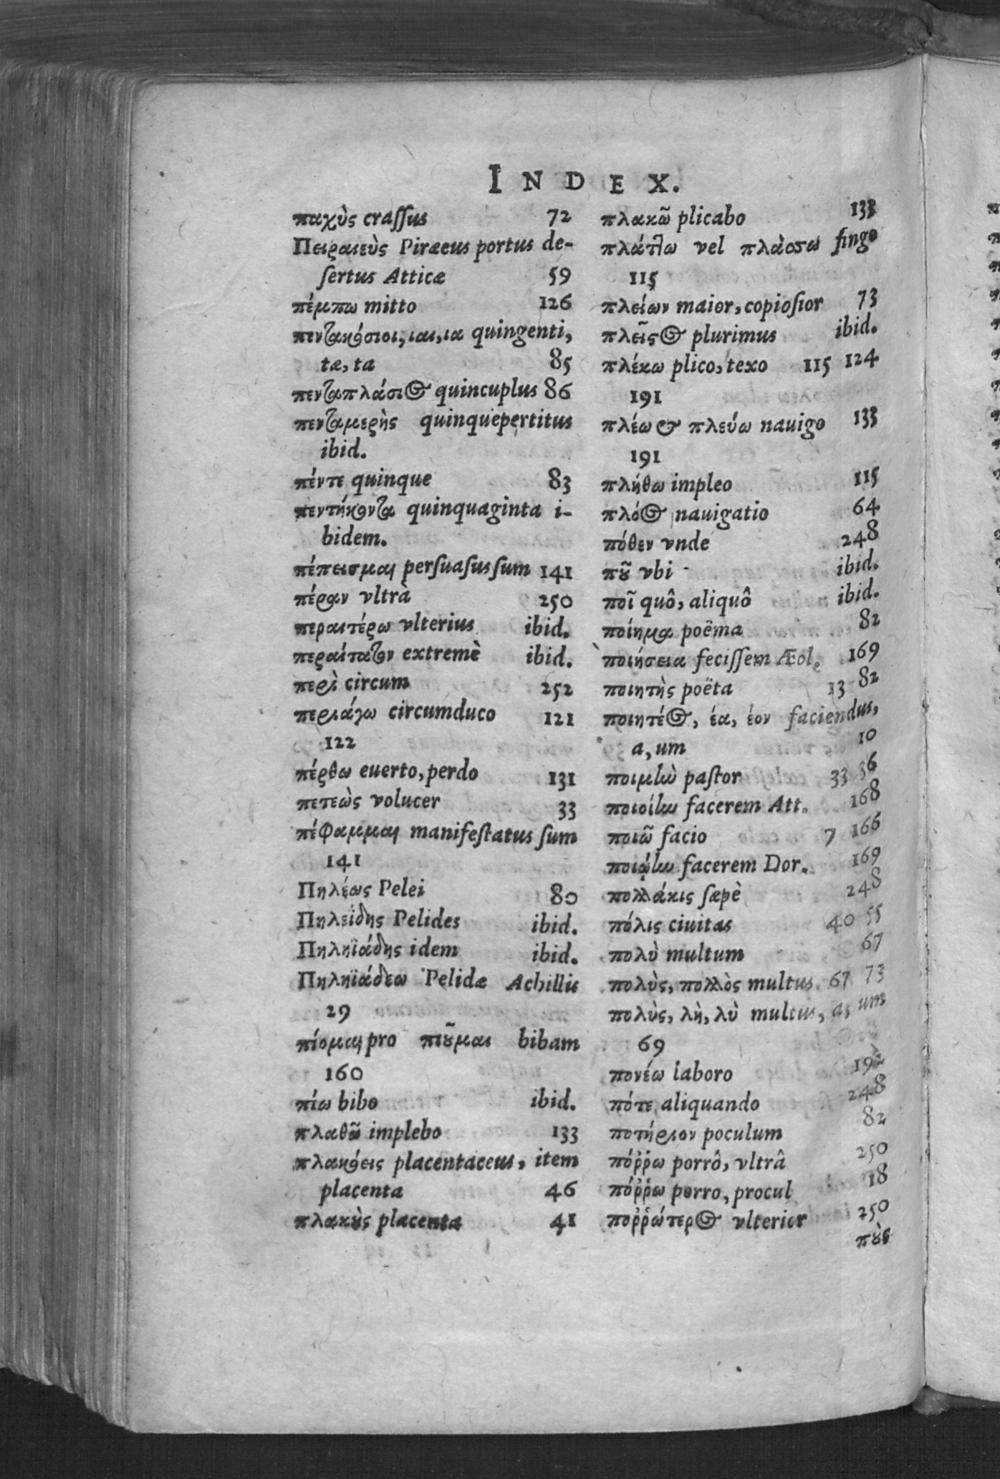 INDEX.
παχὺς crassus 72
Πειραιεὺς Piræeus portus de-
sertus Atticæ 59
πέμπω mitto 126
πεντακόσιοι, ιαι, ια quingenti,
tæ, ta 85
πενταπλάσιος quincuplus 86
πενταμερὴς quinquepertitus
ibid.
πέντε quinque 83
πεντήκοντα quinquaginta i-
bidem.
πέπεισμαι persuasus sum 141
πέραν vltrà 250
περαιτέρω vlterius ibid.
περαίτατον extremè ibid.
περὶ circum 252
περιάγω circumduco 121
122
πέρθω euerto, perdo 131
πετεὼς volucer 33
πέφαμμαι manifestatus sum
141
Πηλέως Pelei 80
Πηλείδης Pelides ibid.
Πηληϊάδης idem ibid.
Πηληϊάδεω Pelidæ Achillis
29
πίομαι pro πιοῦμαι bibam
160
πίω bibo ibid.
πλαθῶ implebo 133
πλακόεις placentaceus, item
placenta 46
πλακοὺς placenta 41
πλακῶ plicabo 133
πλάττω vel πλάσσω fingo
115
πλείων maior, copiosior 73
πλεῖστος plurimus ibid.
πλέκω plico, texo 115 124
191
πλέω & πλεύω nauigo 133
191
πλήθω impleo 115
πλόος nauigatio 64
πόθεν vnde 248
ποῦ vbi ibid.
ποῖ quô, aliquô ibid.
ποίημα poëma 82
ποιήσεια fecissem Æol. 169
ποιητὴς poëta 13 82
ποιητέος, έα, έον faciendus,
a, um 10
ποιμὴν pastor 33 36
ποιοίην facerem Att. 168
ποιῶ facio 7 166
ποιῴην facerem Dor. 169
πολλάκις sæpè 248
πόλις ciuitas 40 55
πολὺ multum 67
πολὺς, πολλὸς multus 67 73
πολὺς, λὴ, λὺ multus, a, um
69
πονέω laboro 192
πότε aliquando 248
ποτήριον poculum 82
πόῤῥω porrô, vltrâ 250
πόῤῥω porro, procul 18
ποῤῥώτερος vlterior 250
ποὺς